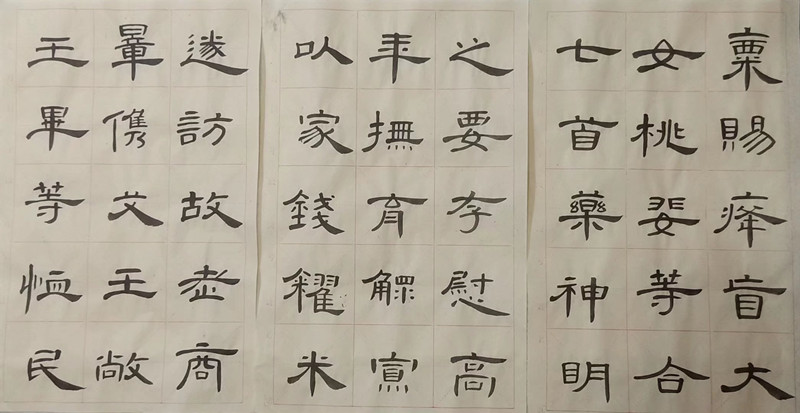 遂訪故老商
量儁艾王敞
王畢等恤民
之要存慰高
年撫育鰥寡
以家錢糴米
粟賜癃盲大
女桃婓等合
七首藥神明